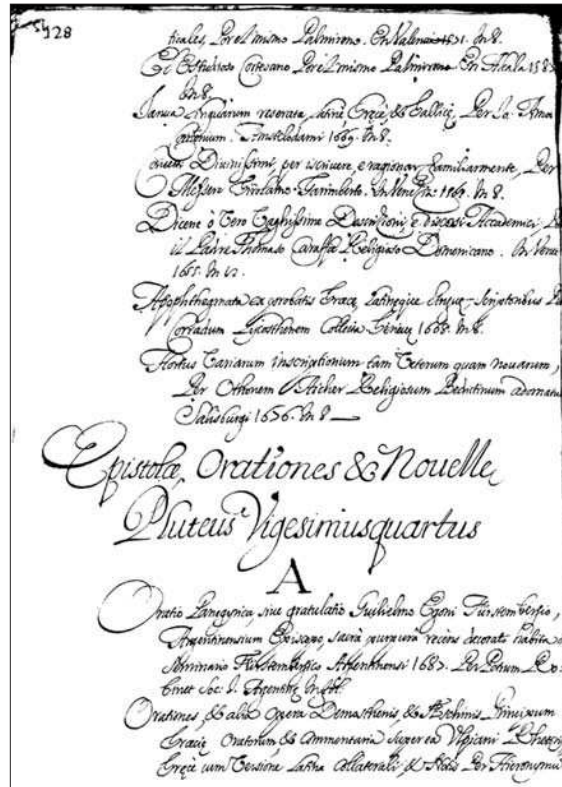 128
ticales, Por el mismo Palmireno. En Valencia 1571. In 8.
El Estudioso Cortesano Por el mismo Palmireno En Alcala 158
In 8.
Janua Linguarum reserata, Latinè Grecè, & Gallicè, Per Jo. Amos
Amstelodami 1669. In 8.
Divinissimi, per scrivere, e ragionar familiarmente, Per
Messere Garimberto. In Venetia In 8.
Dicerie ò Vero Vaghissime Descrittioni, e discorsi Accademici,
il Padre Thomaso Caraffa Religioso Domenicano. In Vene
In 12.
Apophthegmata ex probatis Græcæ, Latinæque Linguæ Scriptoribus Per
Corradum Lycosthenem Collecta. In 8.
Hortus Variarum inscriptionum tam Veterum quam novarum,
Per Othonem Aicher Religiosum adornatus
Salisburgi 1676. In 8
Epistolæ, Orationes & Nouelle,
Pluteus Vigesimusquartus
A
Oratio Panegyrica, sive gratulatio Guilielmo Egoni Fürstembergio,
Argentinensium Episcopo, sacrâ purpurâ recèns decorato habita
Seminario 1687. Per
Soc: J. Argentinæ In fol.
Orationes, & alia Opera Demosthenis, & Æschinis Principum
Græciæ Oratorum, & Commentaria Super ea Vlpiani Rhetoris
Græcè cum Versione Latina Collaterali, & Notis Per Hieronymu